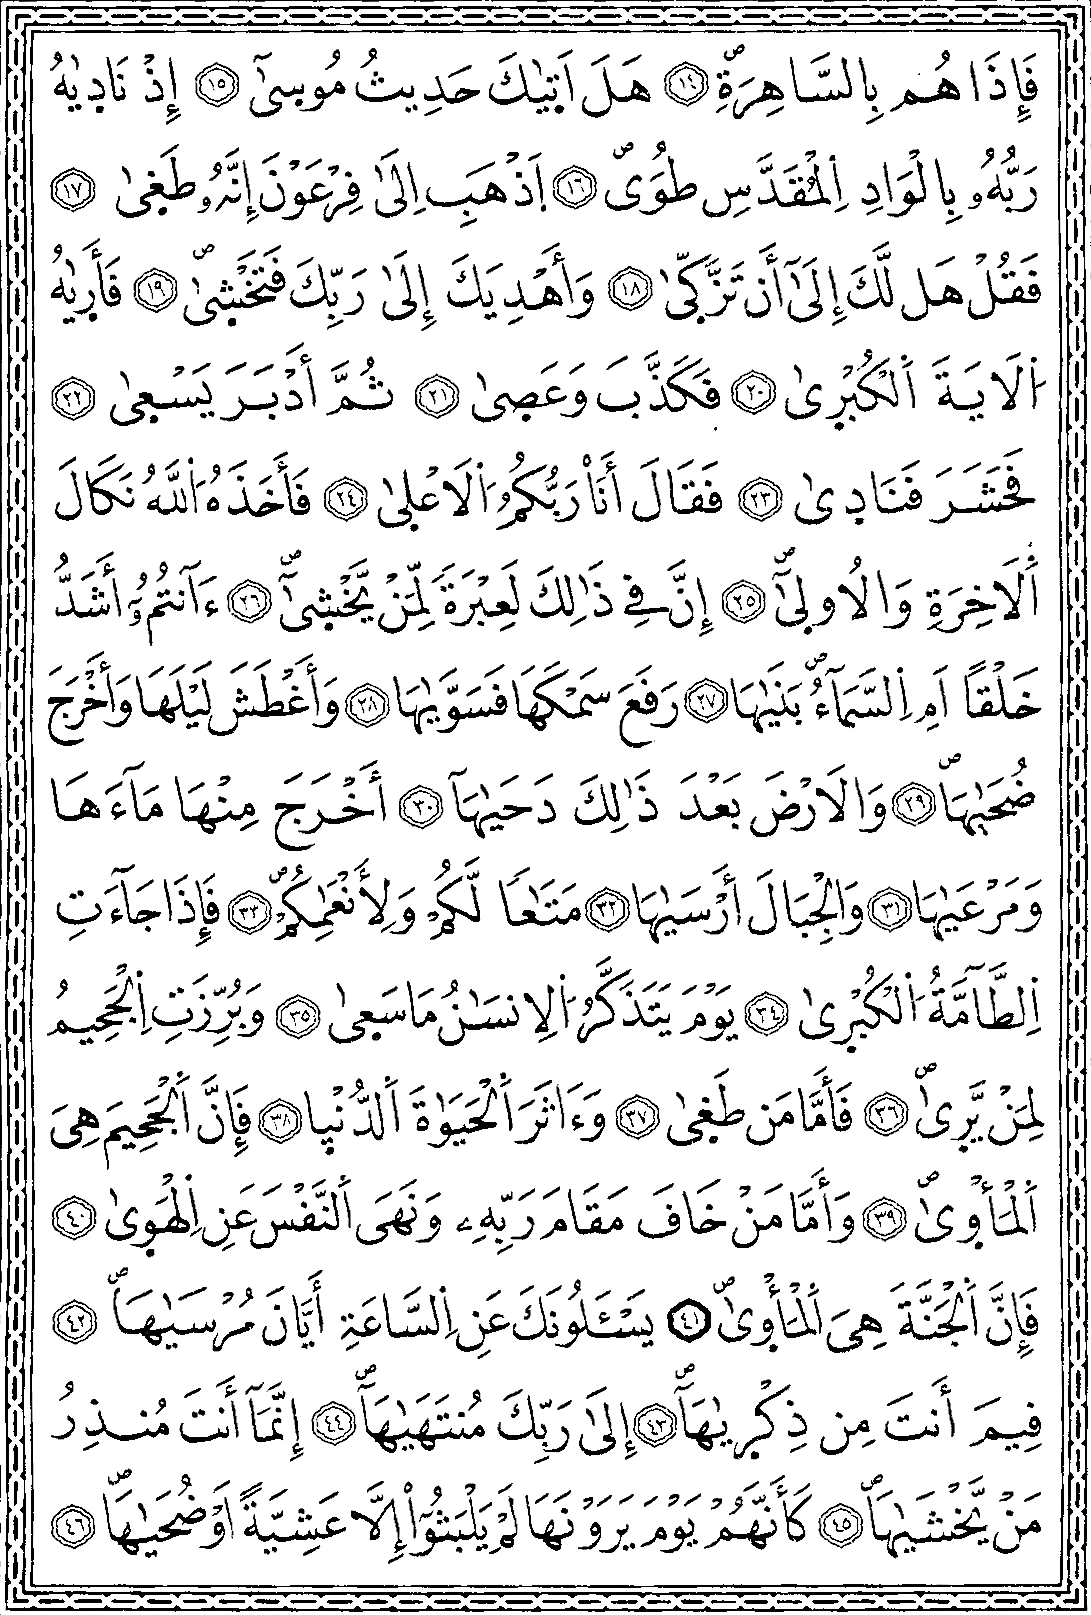 فَإِذَا هُم بِالسَّاهِرَةِۖ ١٤ هَلَ اَتٜيٰكَ حَدِيثُ مُوسٜىٰٓ ١٥ إِذْ نَادٜيٰهُ
رَبُّهُۥ بِالْوَادِ اِ۬لْمُقَدَّسِ طُوَىۖ ١٦ اَ۪ذْهَبِ اِلَىٰ فِرْعَوْنَ إِنَّهُۥ طَغٜىٰ ١٧
فَقُلْ هَل لَّكَ إِلَىٰٓ أَن تَزَّكّٜىٰ ١٨ وَأَهْدِيَكَ إِلَىٰ رَبِّكَ فَتَخْشٜىٰۖ ١٩ فَأَرٜيٰهُ
اُ۬لَايَةَ اَ۬لْكُبْرٜىٰ ٢٠ فَكَذَّبَ وَعَصٜىٰ ٢١ ثُمَّ أَدْبَرَ يَسْعٜىٰ ٢٢
فَحَشَرَ فَنَادٜىٰ ٢٣ فَقَالَ أَنَا۠ رَبُّكُمُ اُ۬لَاعْلٜىٰ ٢٤ فَأَخَذَهُ اُ۬للَّهُ نَكَالَ
اَ۬لَاخِرَةِ وَالُاولٜىٰٓۖ ٢٥ إِنَّ فِے ذَٰلِكَ لَعِبْرَةٗ لِّمَنْ يَّخْشٜىٰٓۖ ٢٦ ءَآنتُمُۥٓ أَشَدُّ
خَلْقاً اَمِ اِ۬لسَّمَآءُۖ بَنَيٰهَا ٢٧ رَفَعَ سَمْكَهَا فَسَوّٜيٰهَا ٢٨ وَأَغْطَشَ لَيْلَهَا وَأَخْرَجَ
ضُحَيٰهَاۖ ٢٩ وَالَارْضَ بَعْدَ ذَٰلِكَ دَحَيٰهَآ ٣٠ أَخْرَجَ مِنْهَا مَآءَهَا
وَمَرْعَيٰهَا ٣١ وَالْجِبَالَ أَرْسَيٰهَا ٣٢ مَتَٰعاٗ لَّكُمْ وَلِأَنْعَٰمِكُمْۖ ٣٣ فَإِذَا جَآءَتِ
اِ۬لطَّآمَّةُ اُ۬لْكُبْرٜىٰ ٣٤ يَوْمَ يَتَذَكَّرُ اُ۬لِانسَٰنُ مَا سَعٜىٰ ٣٥ وَبُرِّزَتِ اِ۬لْجَحِيمُ
لِمَنْ يَّرٜىٰۖ ٣٦ فَأَمَّا مَن طَغٜىٰ ٣٧ وَءَاثَرَ اَ۬لْحَيَوٰةَ اَ۬لدُّنْيٜا ٣٨ فَإِنَّ اَ۬لْجَحِيمَ هِيَ
اَ۬لْمَأْوٜىٰۖ ٣٩ وَأَمَّا مَنْ خَافَ مَقَامَ رَبِّهِۦ وَنَهَى اَ۬لنَّفْسَ عَنِ اِ۬لْهَوٜىٰ ٤٠
فَإِنَّ اَ۬لْجَنَّةَ هِيَ اَ۬لْمَأْوٜىٰۖ ٤١ يَسْـَٔلُونَكَ عَنِ اِ۬لسَّاعَةِ أَيَّانَ مُرْسَيٰهَاۖ ٤٢
فِيمَ أَنتَ مِن ذِكْرٜيٰهَآۖ ٤٣ إِلَىٰ رَبِّكَ مُنتَهَيٰهَآۖ ٤٤ إِنَّمَآ أَنتَ مُنذِرُ
مَنْ يَّخْشَيٰهَاۖ ٤٥ كَأَنَّهُمْ يَوْمَ يَرَوْنَهَا لَمْ يَلْبَثُوٓاْ إِلَّا عَشِيَّةً اَوْ ضُحَيٰهَاۖ ٤٦